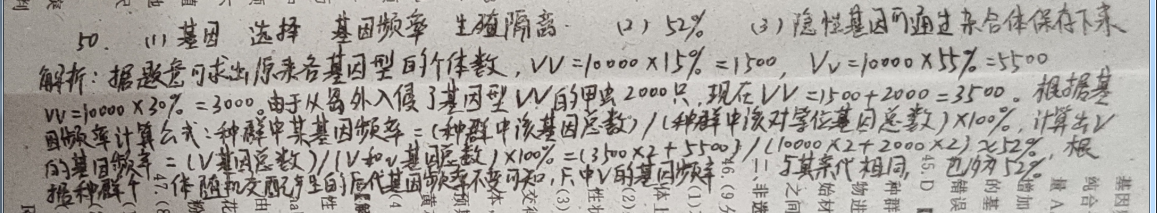 50. (1) 基因 选择 基因频率 生殖隔离 (2) 52% (3) 隐性基因可通过杂合体保存下来
解析:据题意可求出原来各基因型的个体数,VV=10000×15%=1500,Vv=10000×55%=5500
vv=10000×30%=3000。由于从岛外入侵了基因型VV的甲虫2000只,现在VV=1500+2000=3500。根据基
因频率计算公式:种群中某基因频率=(种群中该基因总数)/(种群中该对等位基因总数)×100%,计算出V
的基因频率=(V基因总数)/(V和v基因总数)×100%=(3500×2+5500)/(10000×2+2000×2)≈52%,根
据种群个体随机交配产生的后代基因频率不变可知,F₁中V的基因频率与其亲代相同,也约为52%
基因
纯合
量A
增加
的基
错误
45. D
种群
物进
始材
之间
非选
46. (9分
47. (8